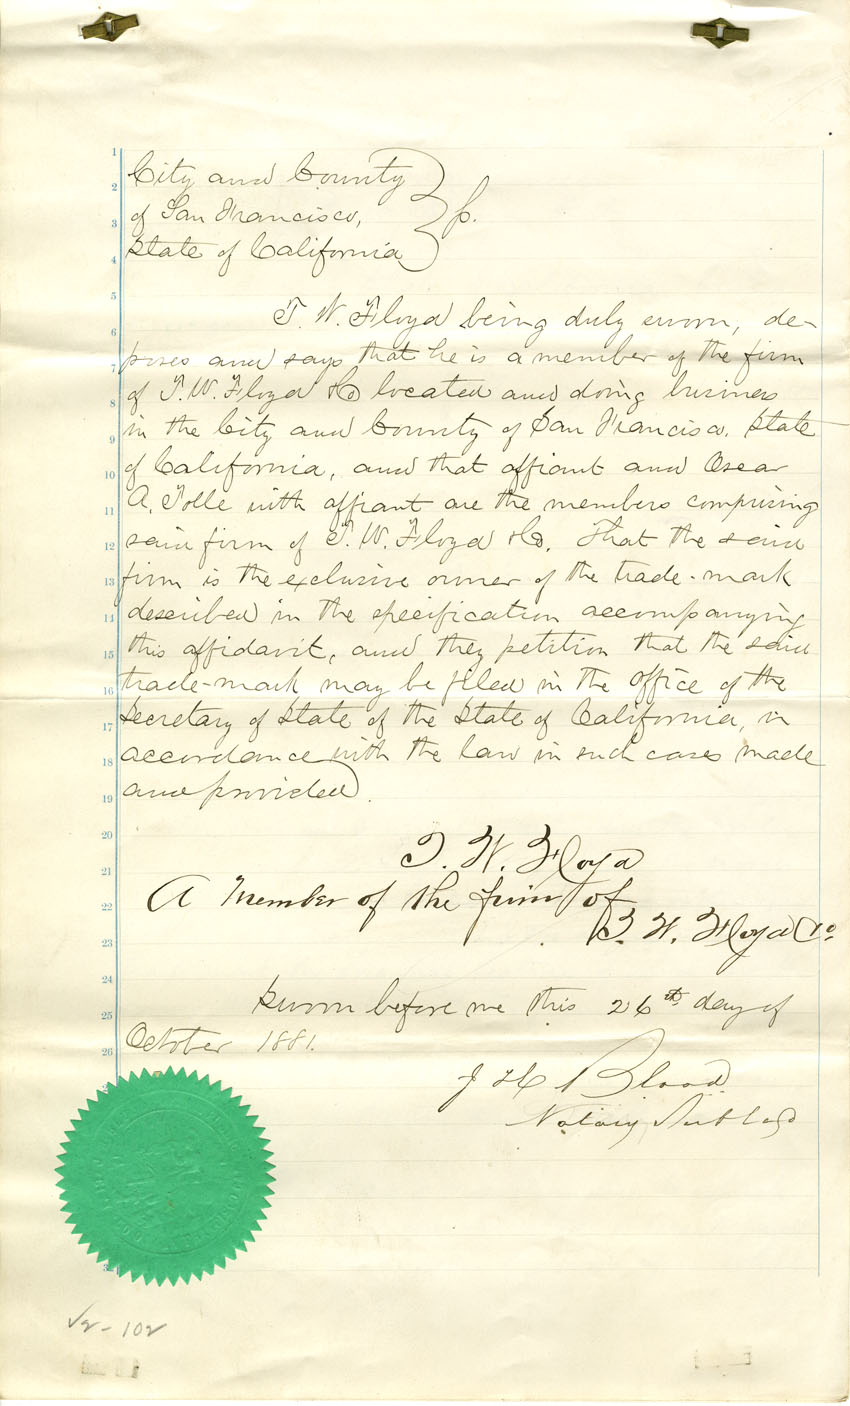 City and County
of San Francisco,
State of California } ss.
T. W. Floyd being duly sworn, de-
poses and says that he is a member of the firm
of T. W. Floyd & Co located and doing business
in the City and County of San Francisco. State
of California, and that affiant and Oscar
A. Tolle with affiant are the members comprising
said firm of T. W. Floyd & Co. That the said
firm is the exclusive owner of the trade-mark
described in the specification accompanying
this affidavit, and they petition that the said
trade-mark may be filed in the office of the
Secretary of State of the State of California, in
accordance with the law in such cases made
and provided.
T. W. Floyd
A Member of the firm of
T. W. Floyd & Co.
Sworn before me this 26th day of
October 1881.
Blood
Notary Public
1
2
3
4
5
6
7
8
9
10
11
12
13
14
15
16
17
18
19
20
21
22
23
24
25
26